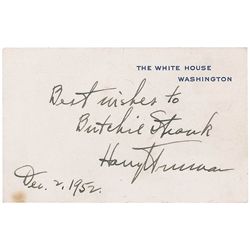 THE WHITE HOUSE
WASHINGTON
Best wishes to
Butchie Shank
Harry Truman
Dec. 2, 1952.